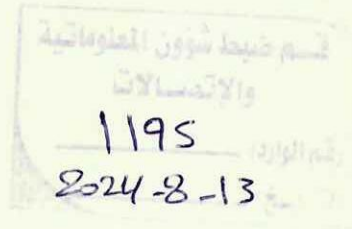 قسم ضبط شؤون المعلوماتية
والإتصالات
رقم الوارد: 1195
2024-8-13